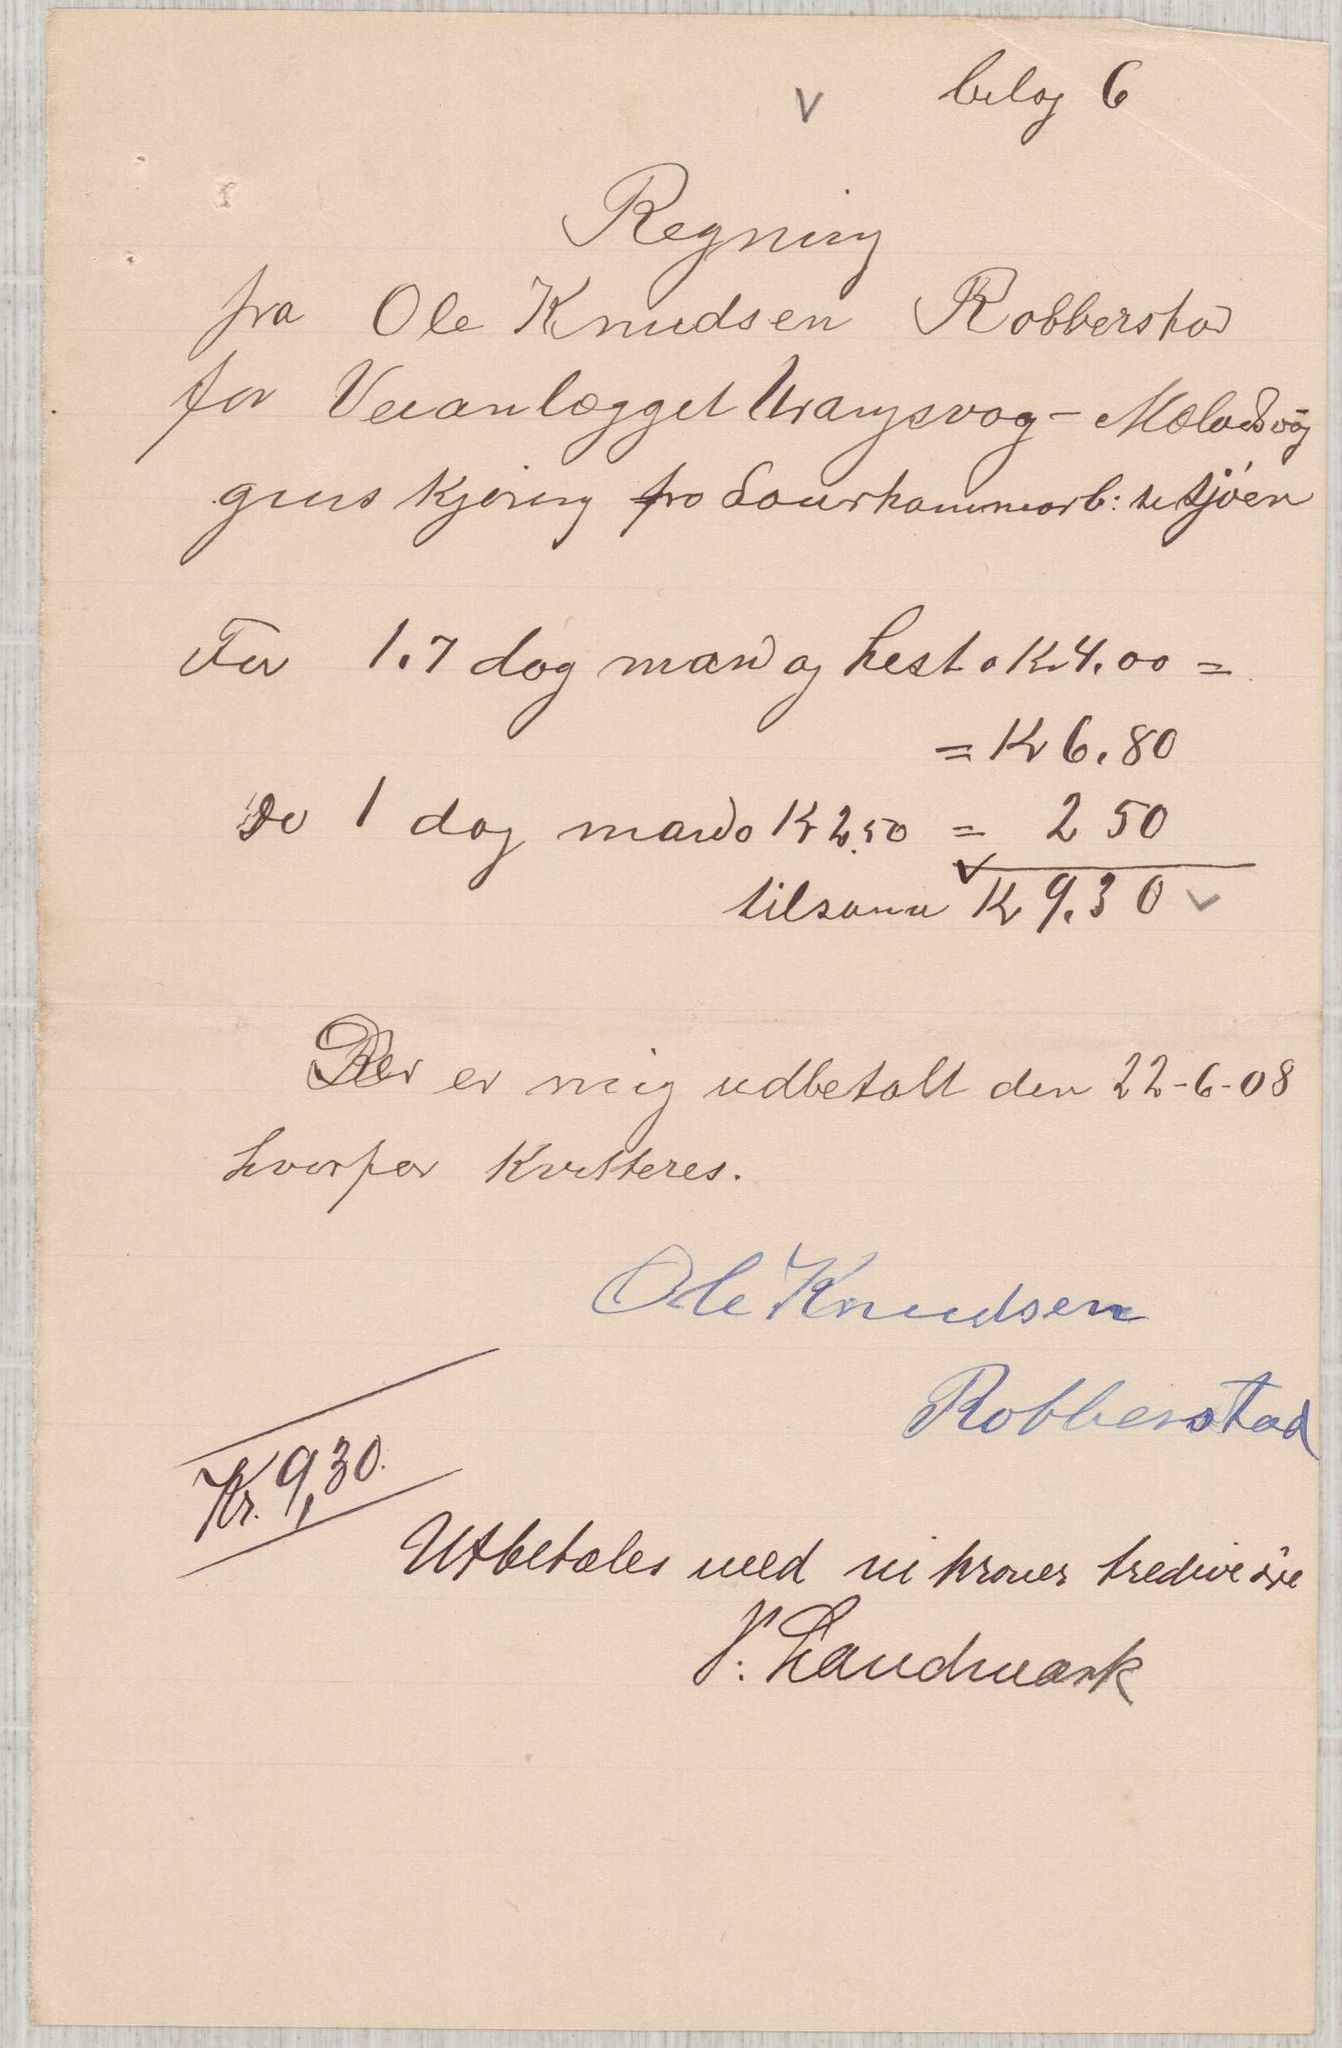 belag 6
Regning
fra Ole Knudsen Robberstad
for Veianlægget Urangsvog - Mælandsvåg
grus kjøring fra Saurhammarb: te sjøen
For 1.7 dag mand og hest a Kr 4.00 =
= Kr 6.80
Do 1 dag mand a Kr 2.50 = 2 50
tilsam Kr 9.30
Der er mig udbetalt den 22-6-08
hvorfor Kvitteres.
Ole Knudsen
Robberstad
Kr. 9,30.
Utbetales med ni kroner tredive øre
Landmark